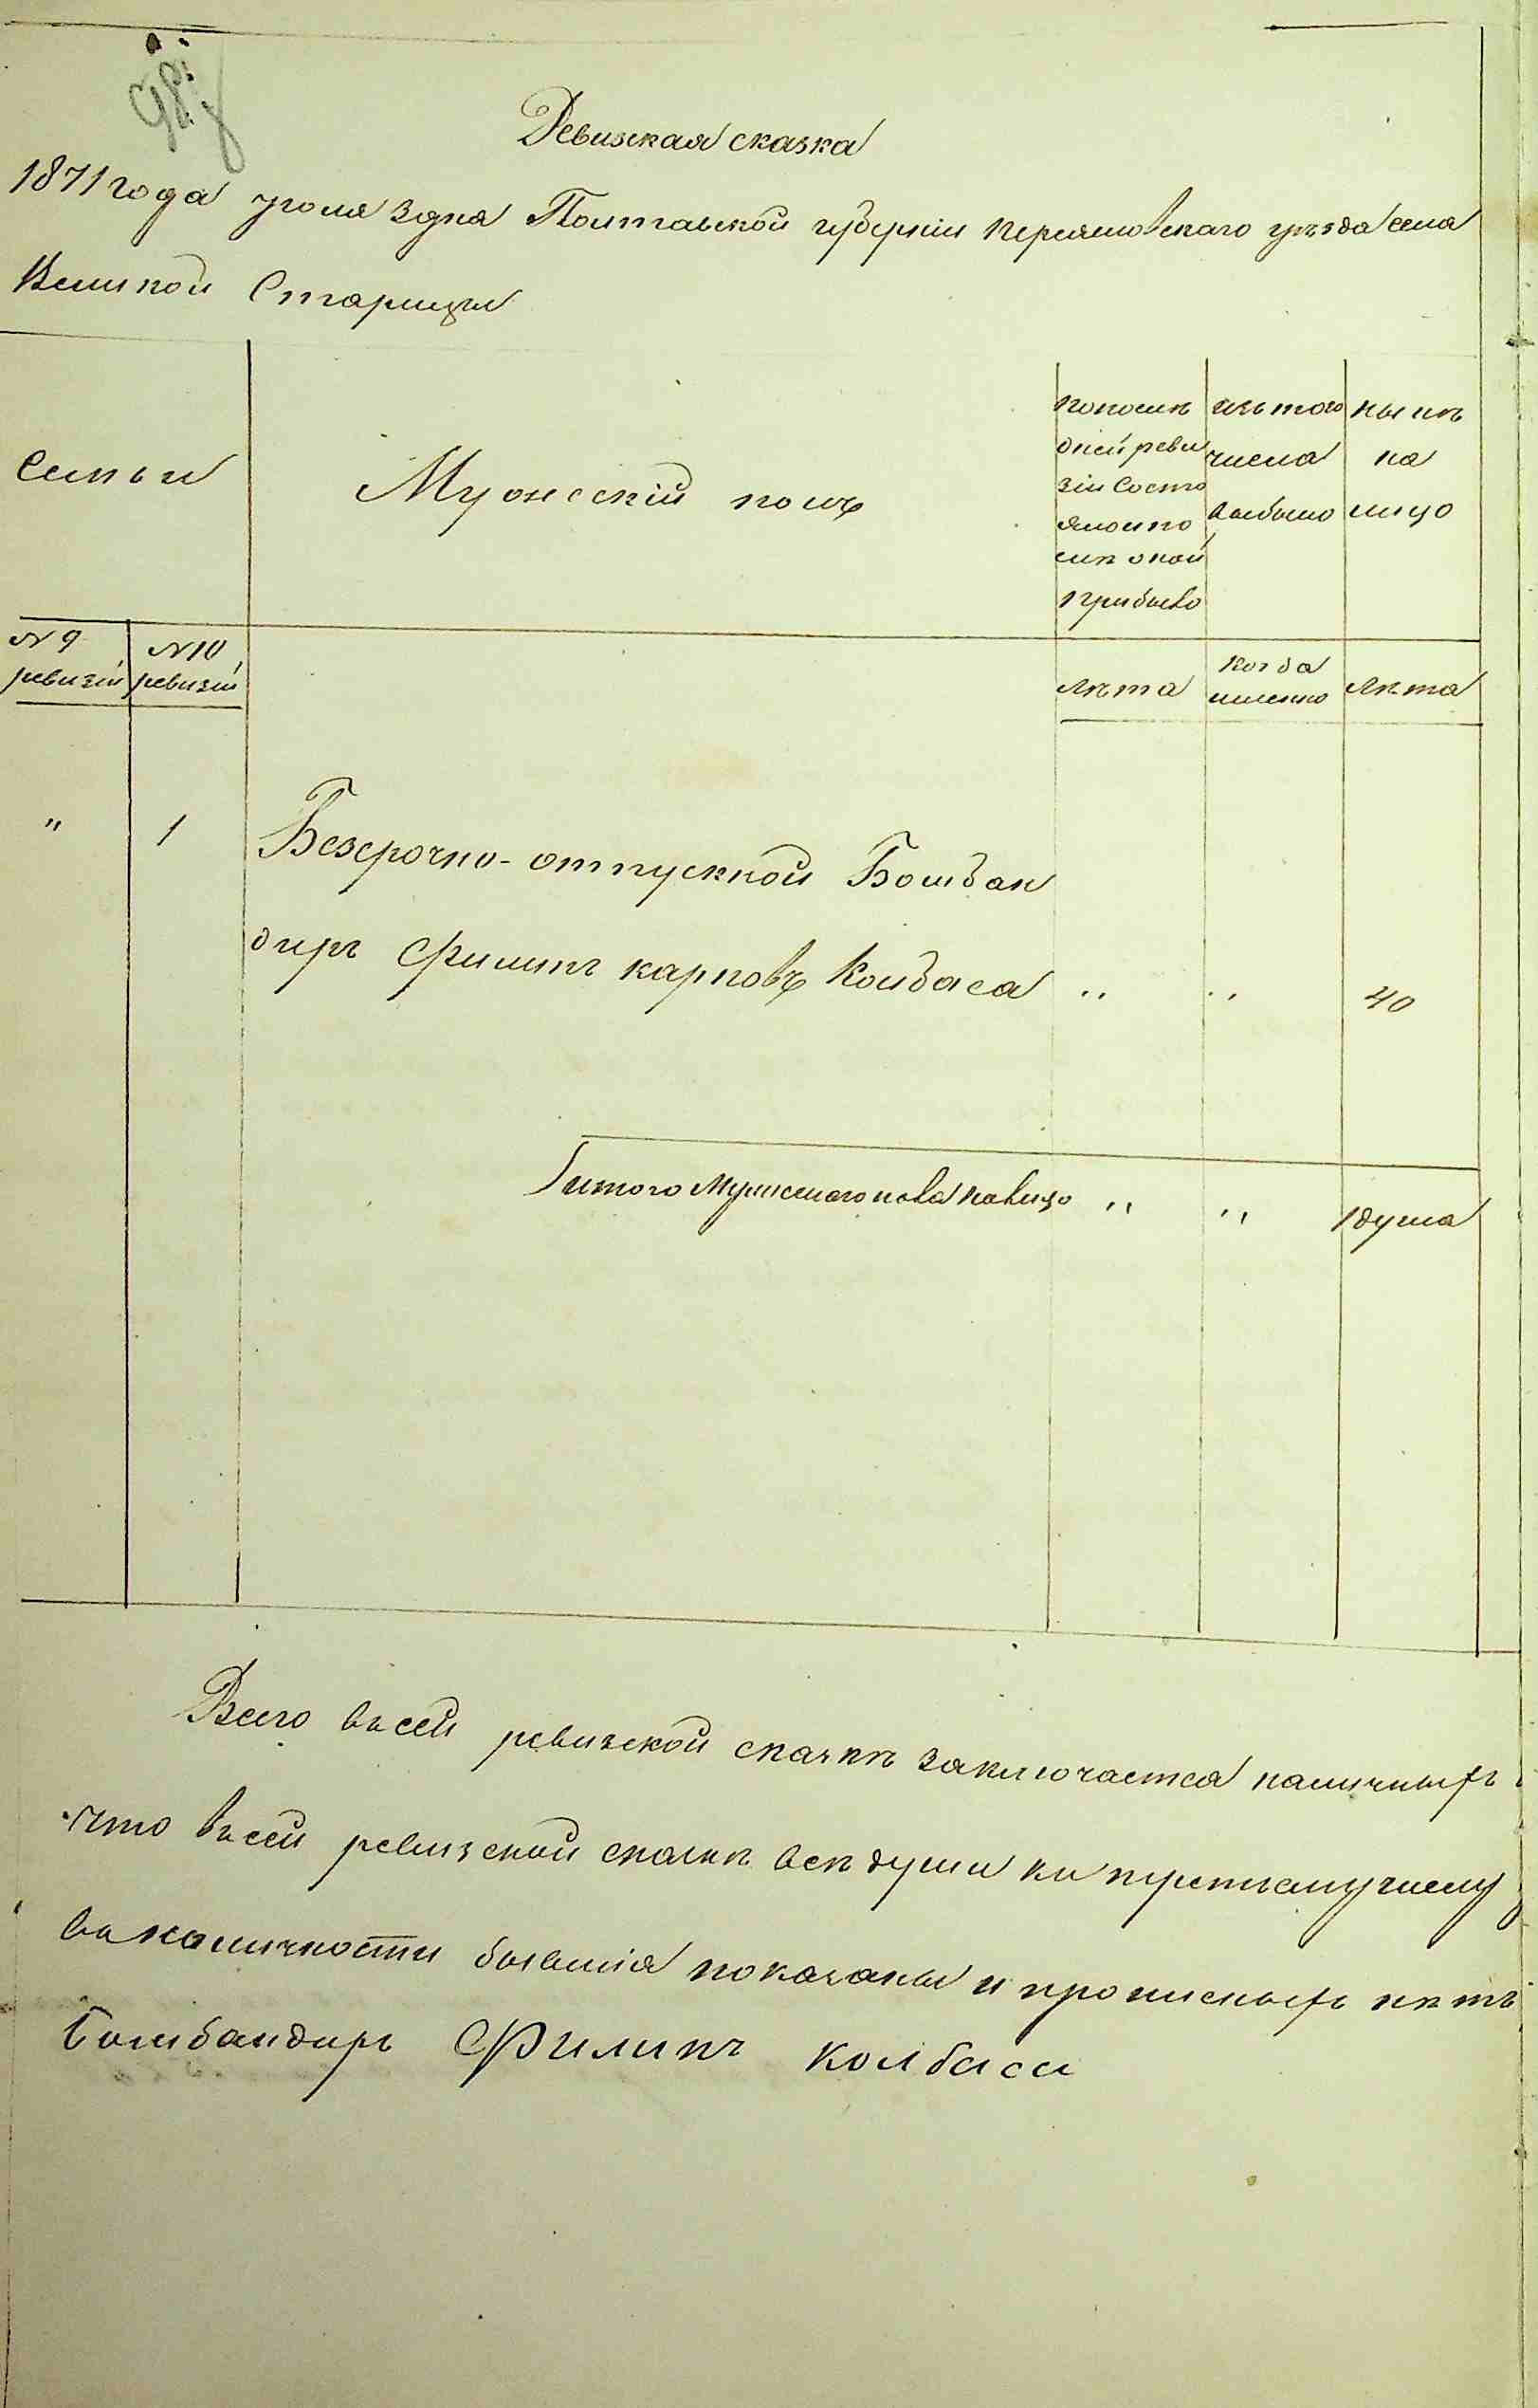 98
Ревизская сказка
1871 года июля 3 дня Полтавской губерніи Переяславскаго уѣзда села
Великой Старицы
Семьи
Мужескій полъ
по послѣ
дней реви
зіи состо
яло и по
слѣ оной
прибыло
изъ того
числа
выбыло
нынѣ
на
лицо
№ 9
ревизіи
№ 10
ревизіи
лѣта
когда
именно
лѣта
" 1 Безсрочно-отпускной Бомбан
диръ Филипъ Карповъ Колбаса " " 40
Итого мужескаго пола налицо " " 1 душа
Всего въ сей ревизской сказкѣ заключается наличныхъ
что въ сей ревизской сказкѣ всѣ души къ числу
въ наличности бывшія показаны и прописныхъ нѣтъ
Бомбандиръ Филипъ Колбаса